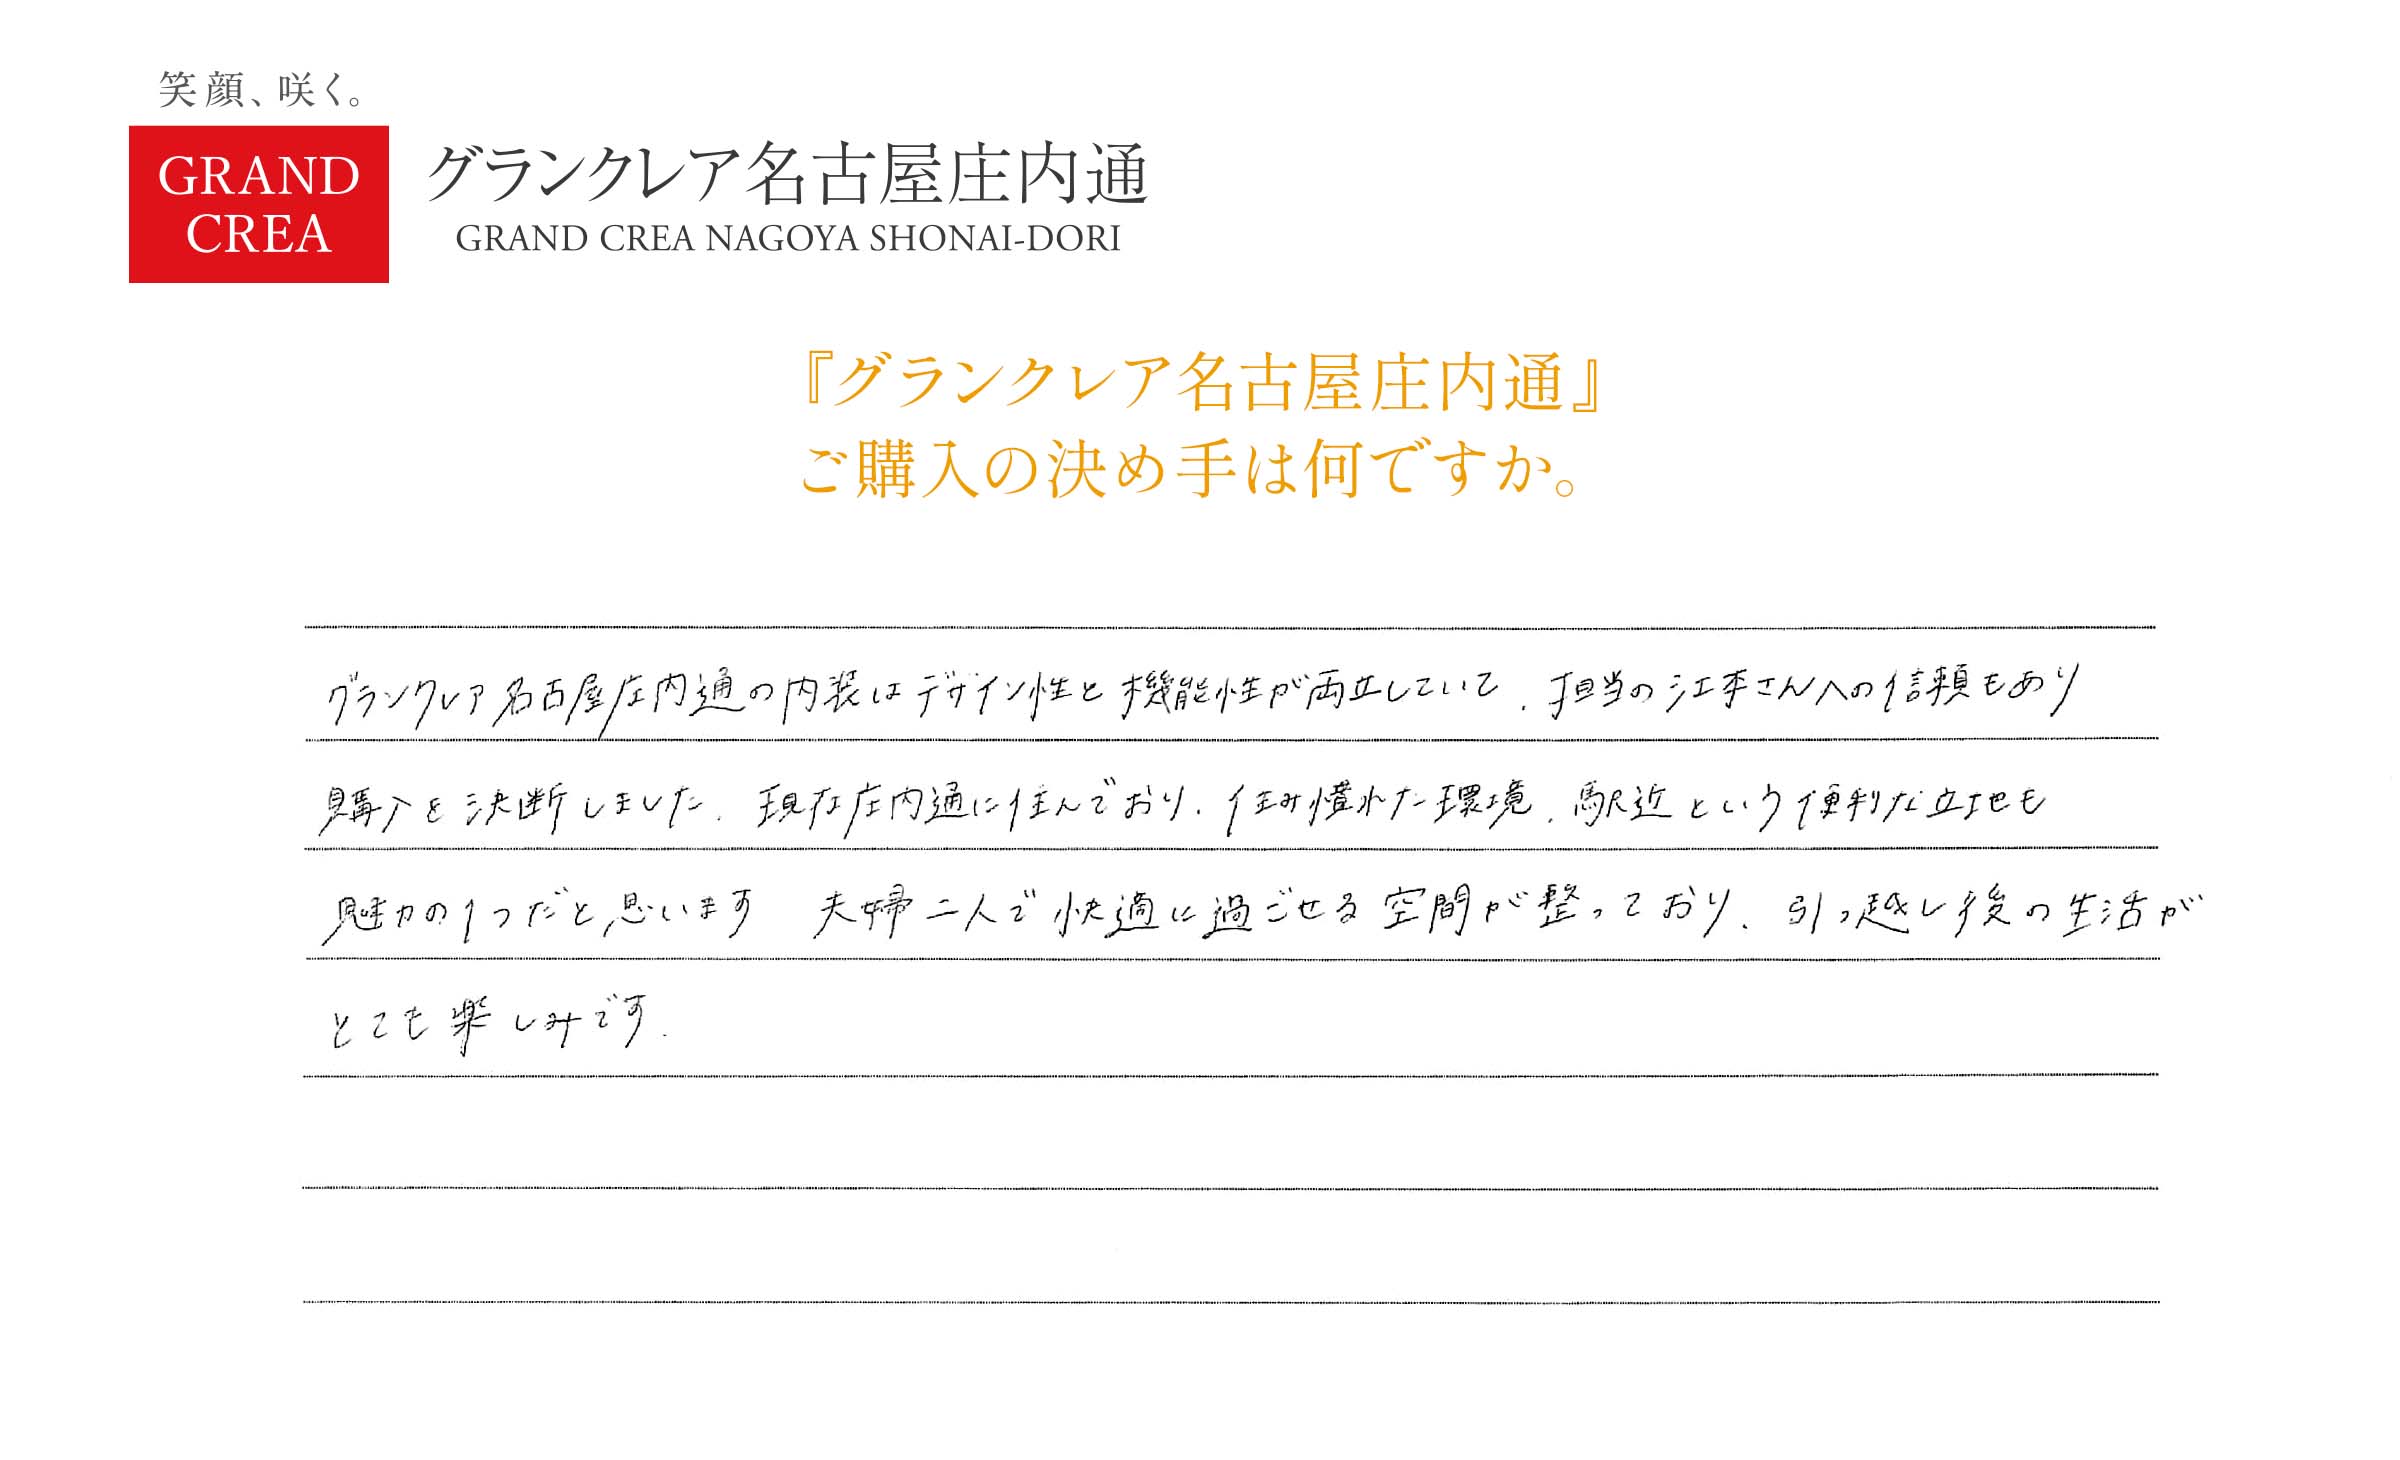 笑顔、咲く。
GRAND
CREA
グランクレア名古屋庄内通
GRAND CREA NAGOYA SHONAI-DORI
『グランクレア名古屋庄内通』
ご購入の決め手は何ですか。
グランクレア名古屋庄内通の内装はデザイン性と機能性が両立していて、担当の江本さんへの信頼もあり
購入を決断しました。現在庄内通に住んでおり、住み慣れた環境、駅近という便利な立地も
魅力の1つだと思います 夫婦二人で快適に過ごせる空間が整っており、引っ越し後の生活が
とても楽しみです。